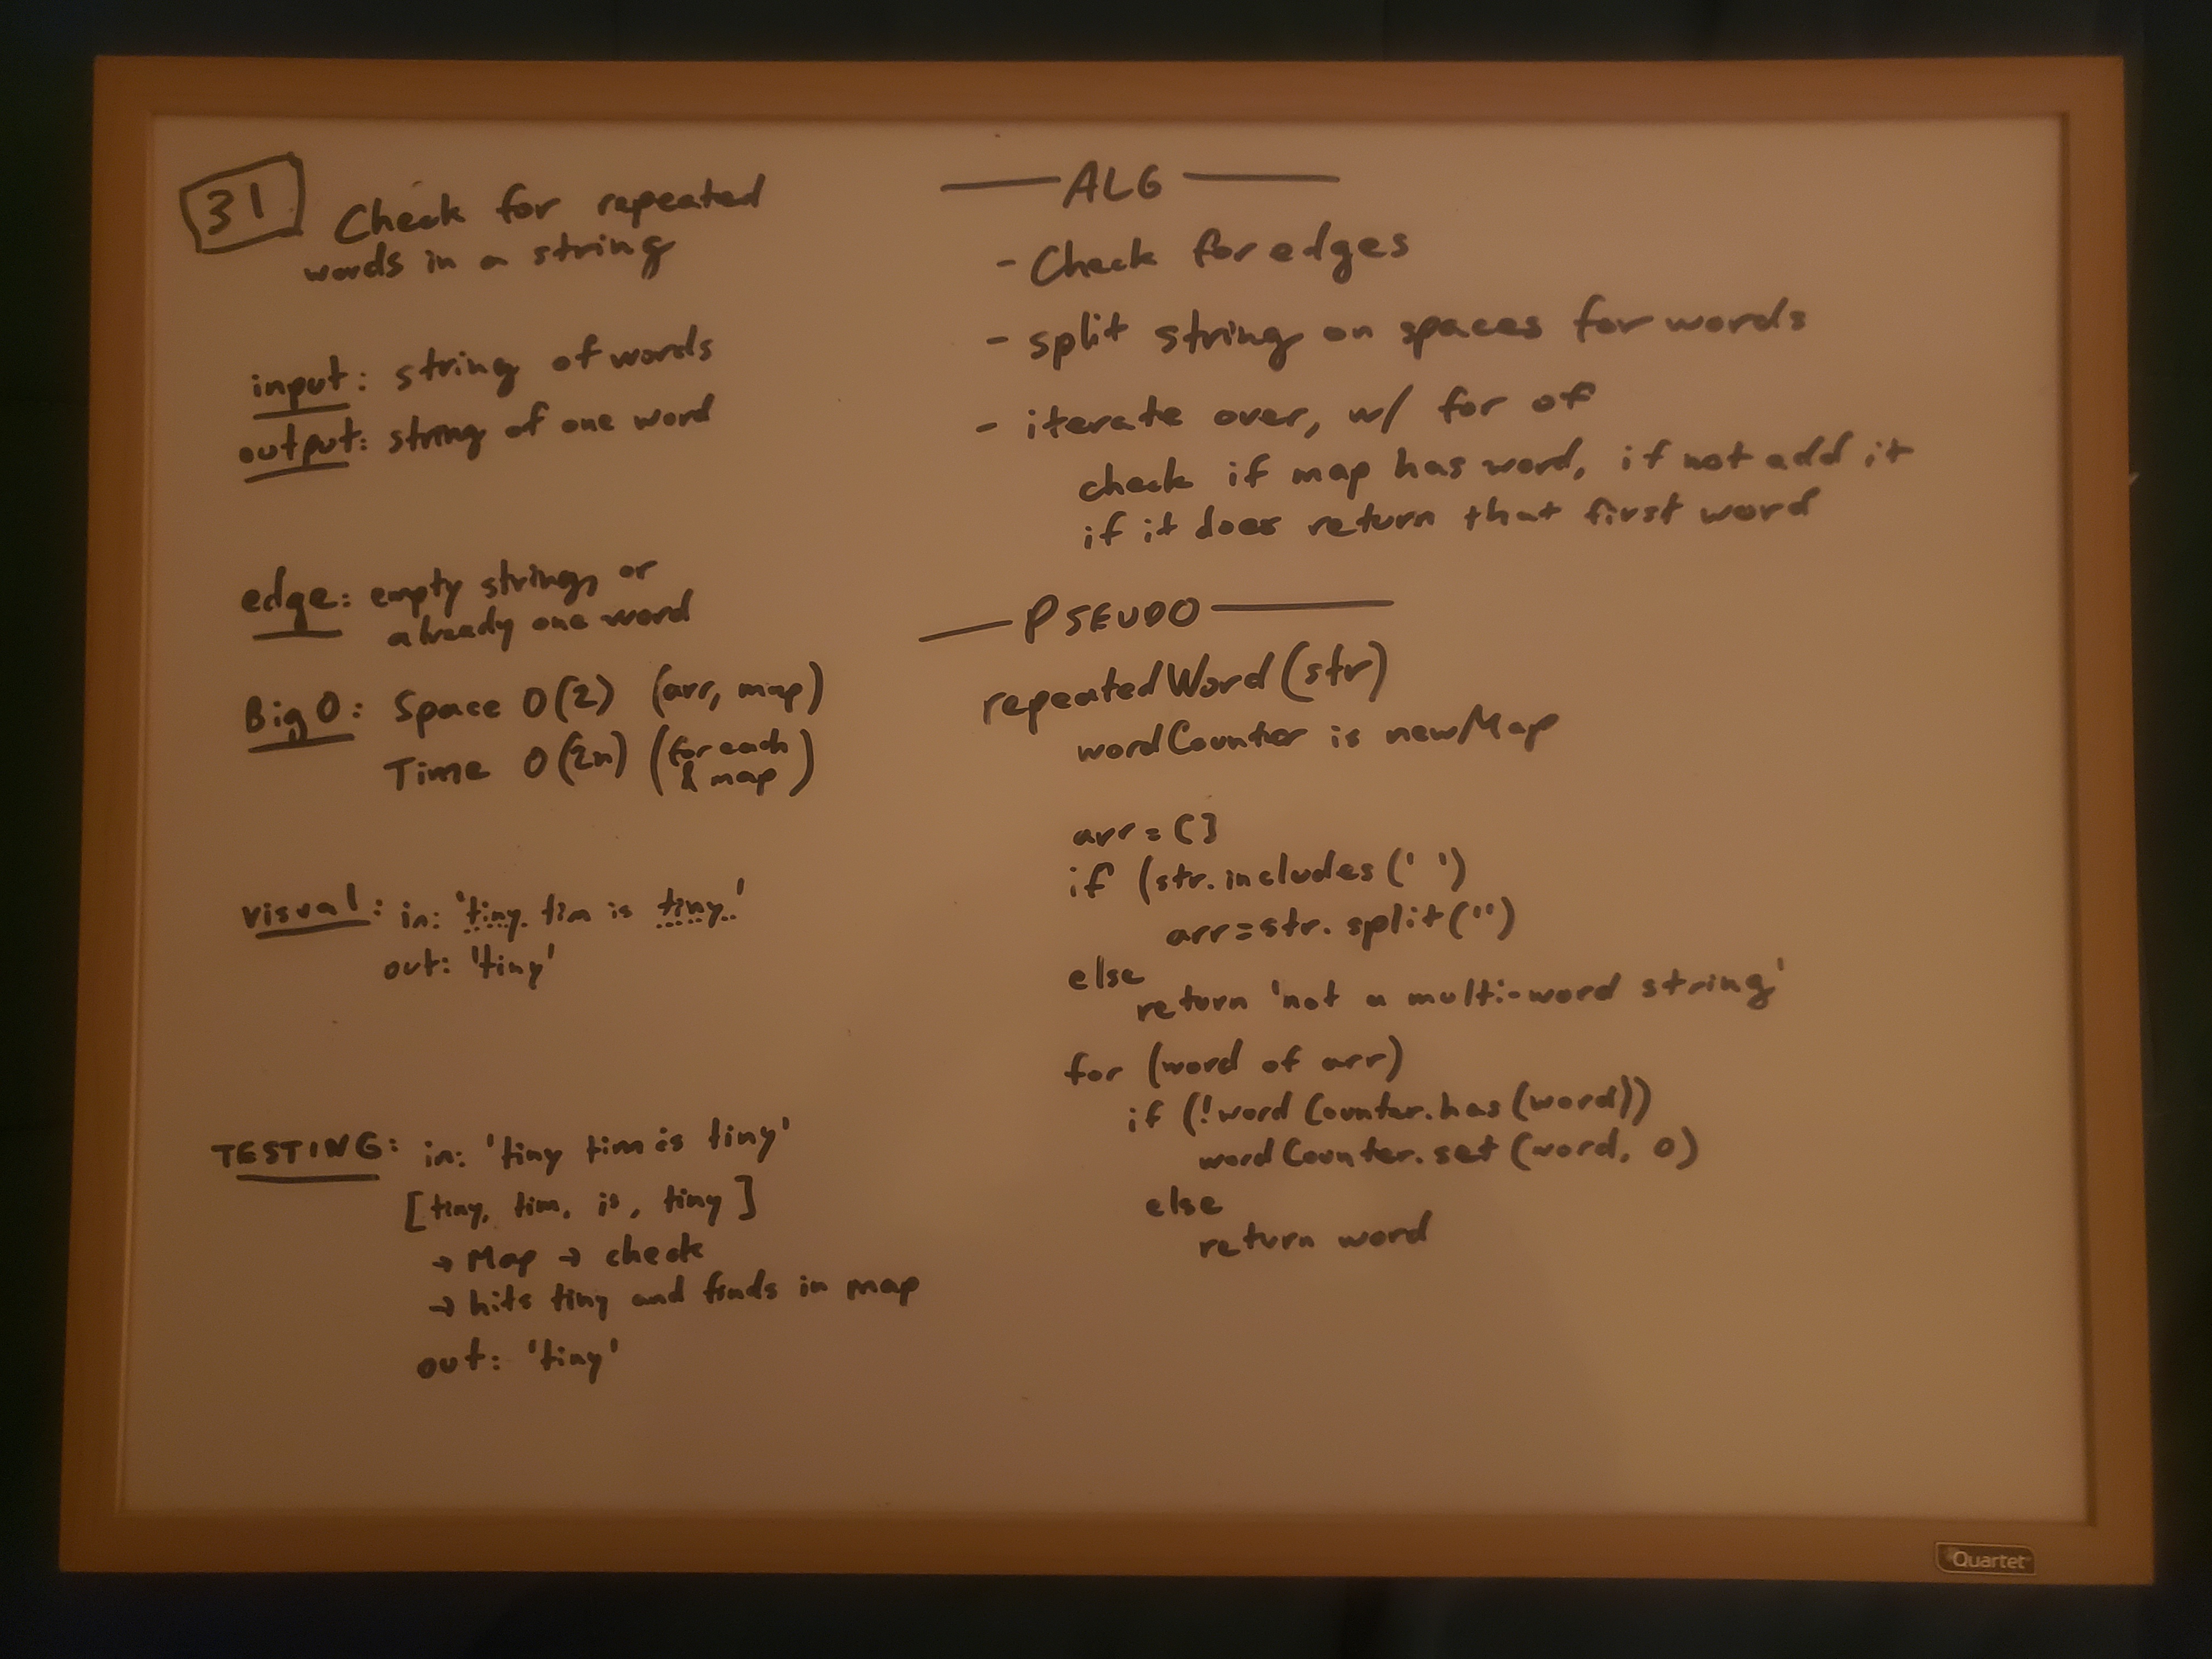 31
Check for repeated
words in a string
input: string of words
output: string of one word
edge: empty string, or
already one word
Big O: Space O(2) (arr, map)
Time O(2n) (for each
& map)
visual: in: 'tiny tim is tiny.'
out: 'tiny'
TESTING: in: 'tiny tim is tiny'
[tiny, tim, is, tiny]
→ Map → check
→ hits tiny and finds in map
out: 'tiny'
ALG
- Check for edges
- split string on spaces for words
- iterate over, w/ for of
check if map has word, if not add it
if it does return that first word
PSEUDO
repeatedWord(str)
wordCounter is newMap
arr = []
if (str.includes(' ')
arr=str.split('')
else
return 'not a multi-word string'
for (word of arr)
if (!wordCounter.has(word))
wordCounter.set(word, 0)
else
return word
Quartet